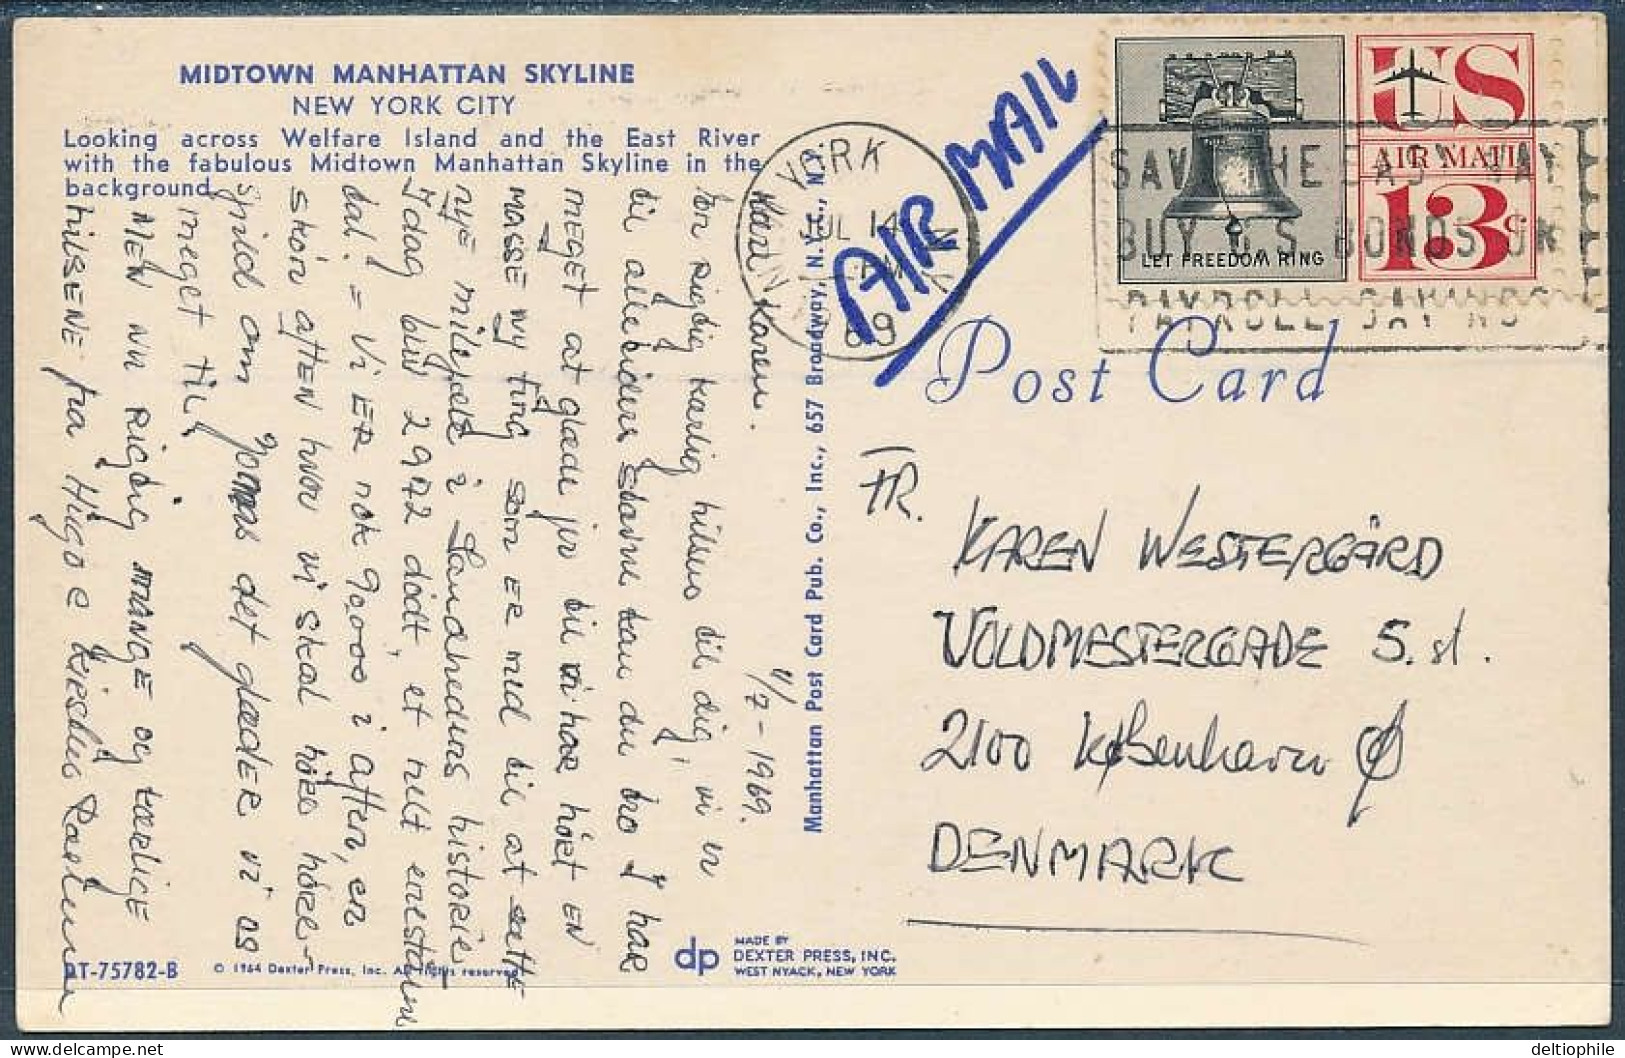 MIDTOWN MANHATTAN SKYLINE
NEW YORK CITY
Looking across Welfare Island and the East River
with the fabulous Midtown Manhattan Skyline in the
background.
11/7-1969.
Kære Karen.
en rigtig kærlig hilsen til dig, vi er
du tro I har
meget at glæde jer til vi har hørt EN
MASSE ny ting som ER med til at sætte
nye milepæle i Sundhedens historie
I dag blev 2972 døbt, et helt enestående
tal! = Vi ER nok 90.000 i aften, en
skøn aften hvor vi skal høre
spild om det glæder vi os
meget til.
MEN nu RIGTIG MANGE og kærlige
hilsene fra Hugo & Kirsten Rasmussen
AT-75782-B
© 1964 Dexter Press, Inc. All rights reserved
Manhattan Post Card Pub. Co., Inc., 657 Broadway, N.Y.C., N.Y.
dp
MADE BY
DEXTER PRESS, INC.
WEST NYACK, NEW YORK
YORK
JUL 14
PM
1969
AIR MAIL
LET FREEDOM RING
US
AIR MAIL
13c
SAVE THE EASY WAY
BUY U S BONDS ON
PAYROLL SAVINGS
Post Card
FR.
KAREN WESTERGÅRD
VOLDMESTERGADE 5. st.
2100 København Ø
DENMARK
deltiophile